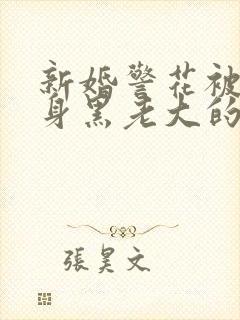 新婚警花被
身黑老大的
張昊文